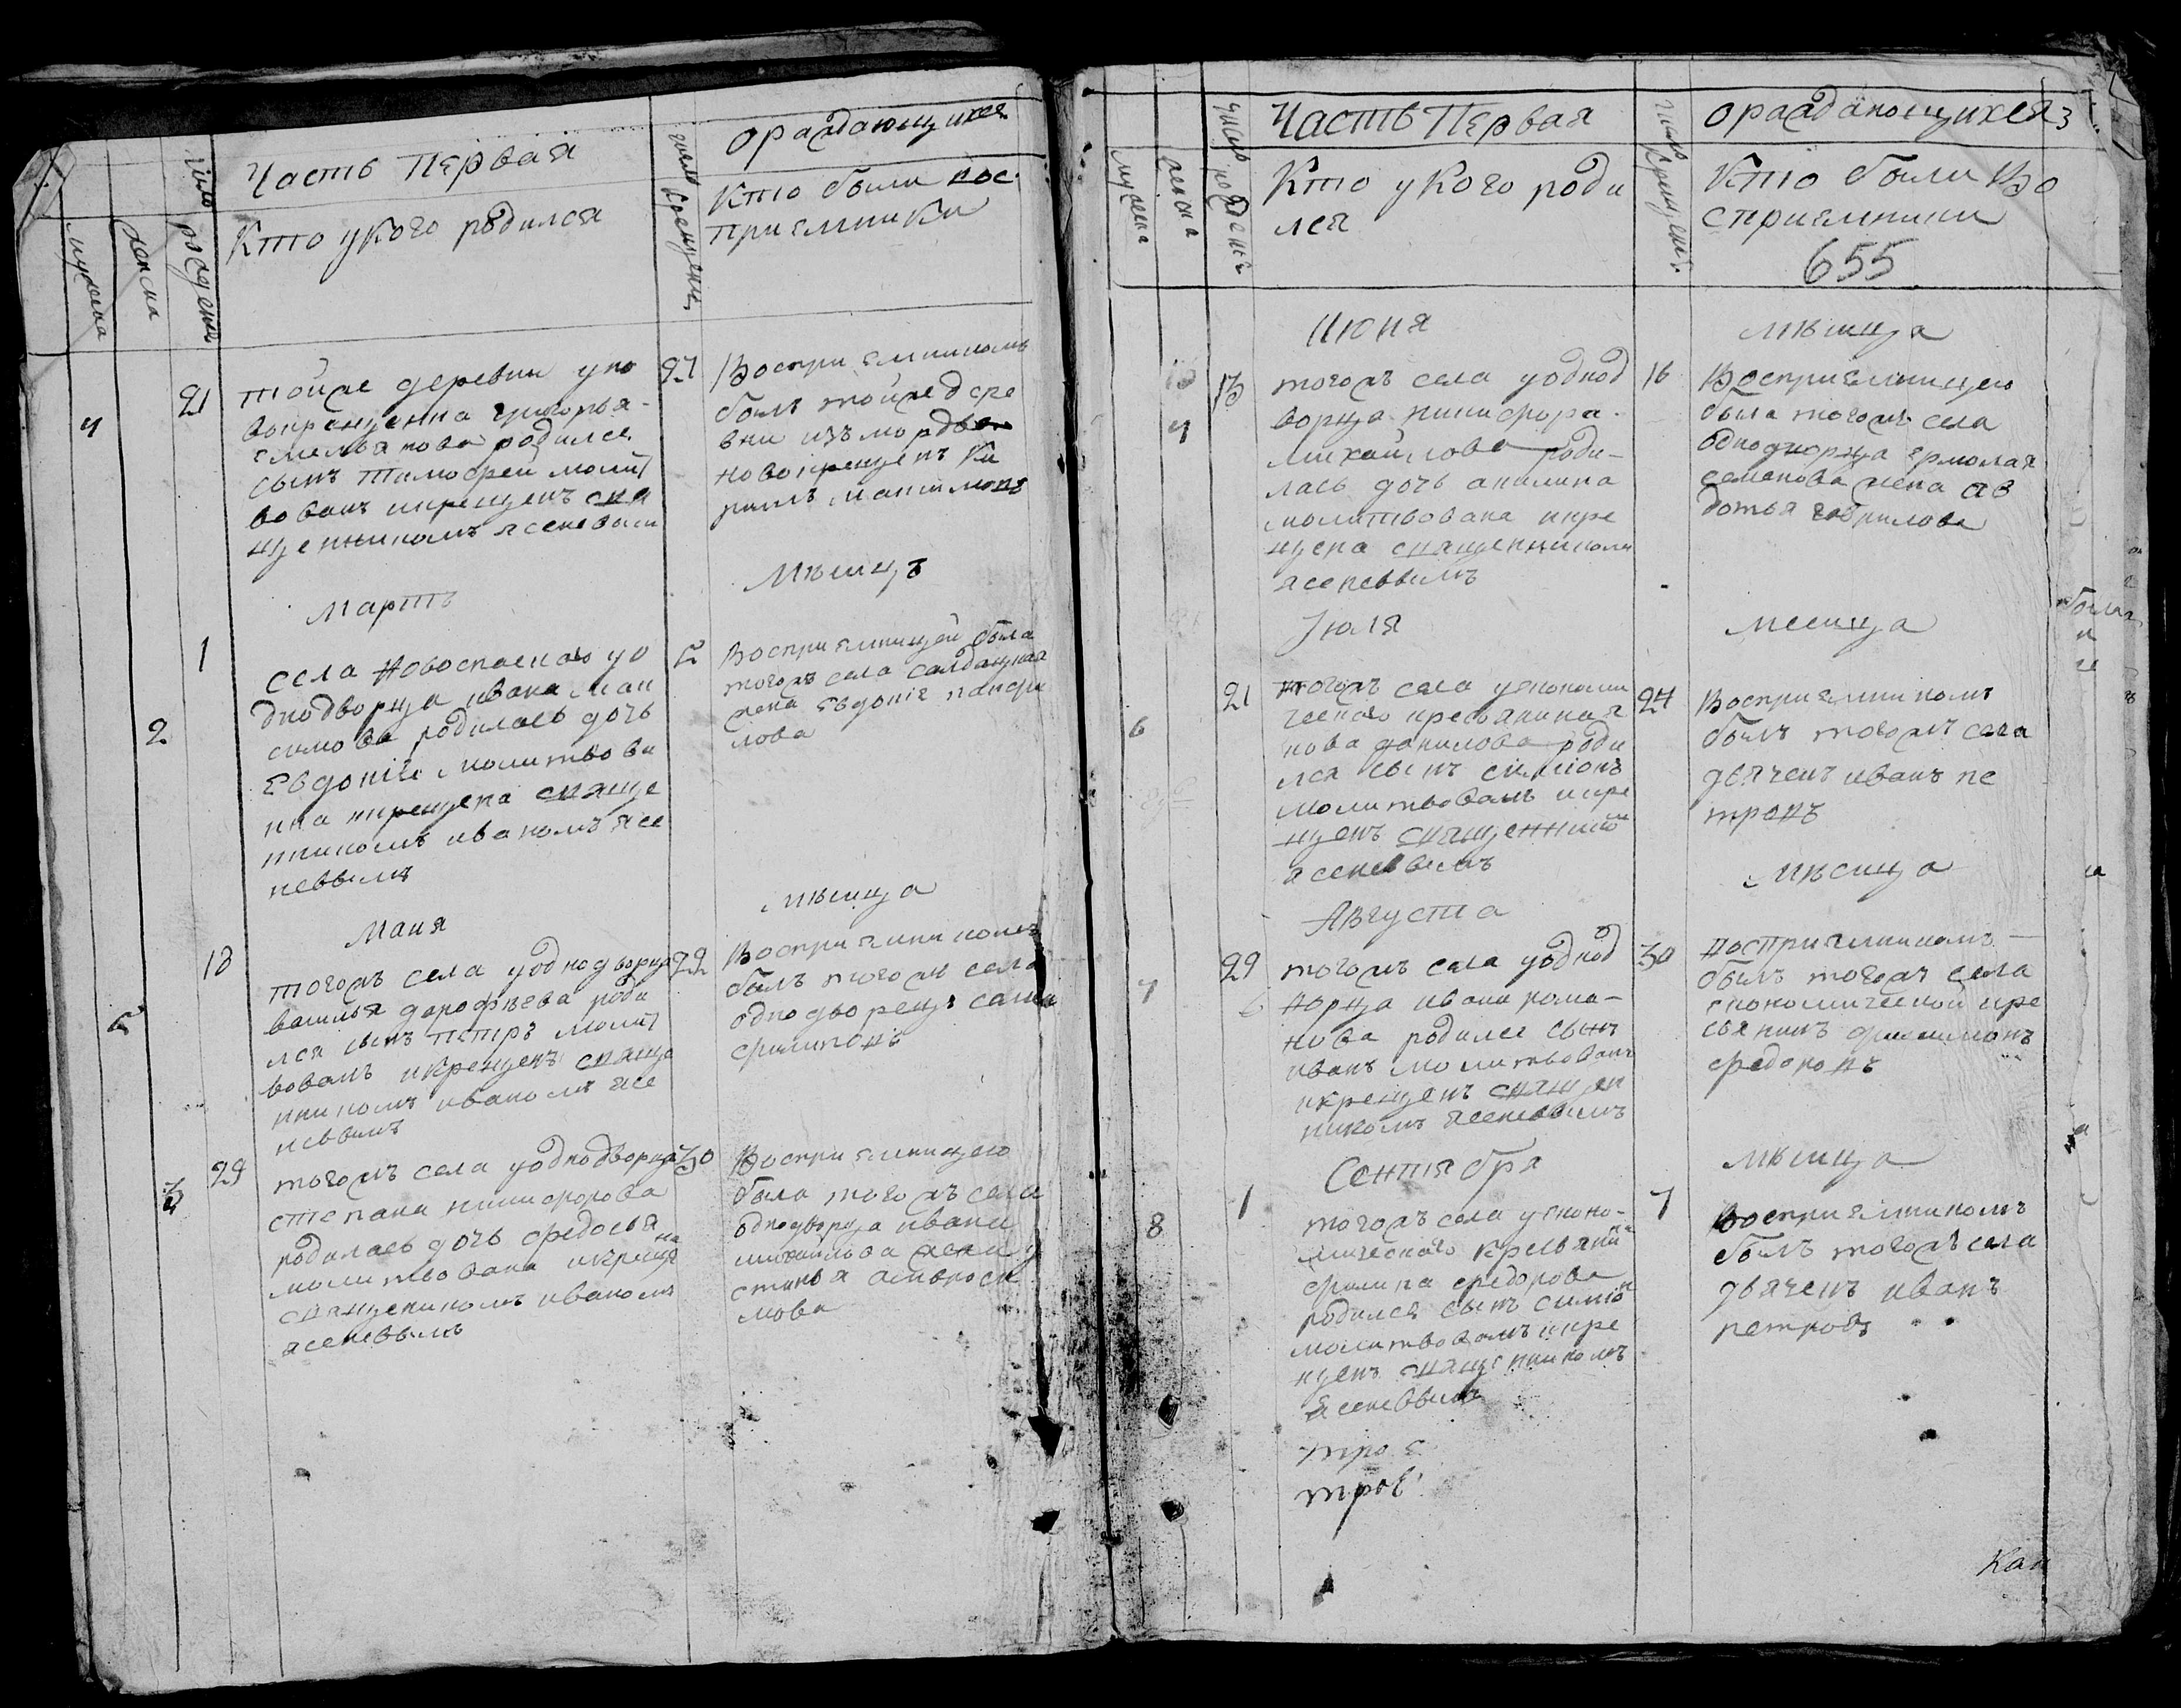 Часть Первая
ораждающихся
Число рождения
мужеска
женска
Кто укого родился
число крещения
Кто были вос
приемники
4
21
тойже деревни уно
вокрещенна григорья
емельянова родился
сынъ тимофеи молит
вованъ икрещенъ свя
щенникомъ ясеневым
27
Восприемникомъ
былъ тойже дере
вни изъ мордвы
новокрещенъ Ки
рилъ максимовъ
Мартъ
мѣсицъ
2
1
села Новоспаскаго уо
днодворца ивана мак
симова родилась дочь
Евдокия молитвова
нна икрещена свяще
нникомъ иваномъ ясе
невымъ
5
Восприемницей была
тогожъ села салдацкая
жена Евдокия панфи
лова
Маия
мѣсица
5
18
тогожъ села уоднодворца
василья дорофѣева роди
лся сынъ петръ молит
вованъ икрещенъ свяще
нникомъ иваномъ ясе
невымъ
22
Восприемникомъ
былъ тогожъ села
однодворецъ
филиповъ
3
29
тогожъ села уоднодворца
степана никифорова
родилась дочь федосья
молитвована икреще
на
священикомъ иваномъ
ясеневымъ
30
Восприемницею
была тогожъ села
однодворца ивана
михаилова жена у
стинья амвроси
мова
Часть Первая
ораждающихся
мужеска
женска
число рождения
Кто укого роди
лся
число крещения
Кто были Во
сприемники
655
Июня
мѣсица
4
13
тогожъ села уоднод
ворца никифора
михаилова роди-
лась дочь акилина
молитвована икре
щена священникомъ
ясеневымъ
16
Восприемницею
была тогожъ села
однодворца ермолая
семенова жена ав
дотья гаврилова
Июля
месица
6
21
тогожъ села уекономи
ческаго крестьянина я
кова данилова роди
лся сынъ симионъ
молитвованъ икре
щенъ священнико
ясеневымъ
24
Восприемникомъ
былъ тогожъ села
дьячекъ иванъ пе
тровъ
Августа
мѣсица
7
29
тогожъ села уоднод
ворца ивана рома-
нова родился сынъ
иванъ молитвованъ
икрещенъ священ
никомъ ясеневымъ
30
восприемникомъ
былъ тогожъ села
економической кре
стьянинъ филимонъ
федоровъ
Сентября
мѣсица
8
1
тогожъ села уеконо-
мическаго крестьяни
на
филипа федорова
родился сынъ симио
н
молитвованъ икре
щенъ священникомъ
ясеневымъ
7
восприемникомъ
былъ тогожъ села
дьячекъ иванъ
петровъ